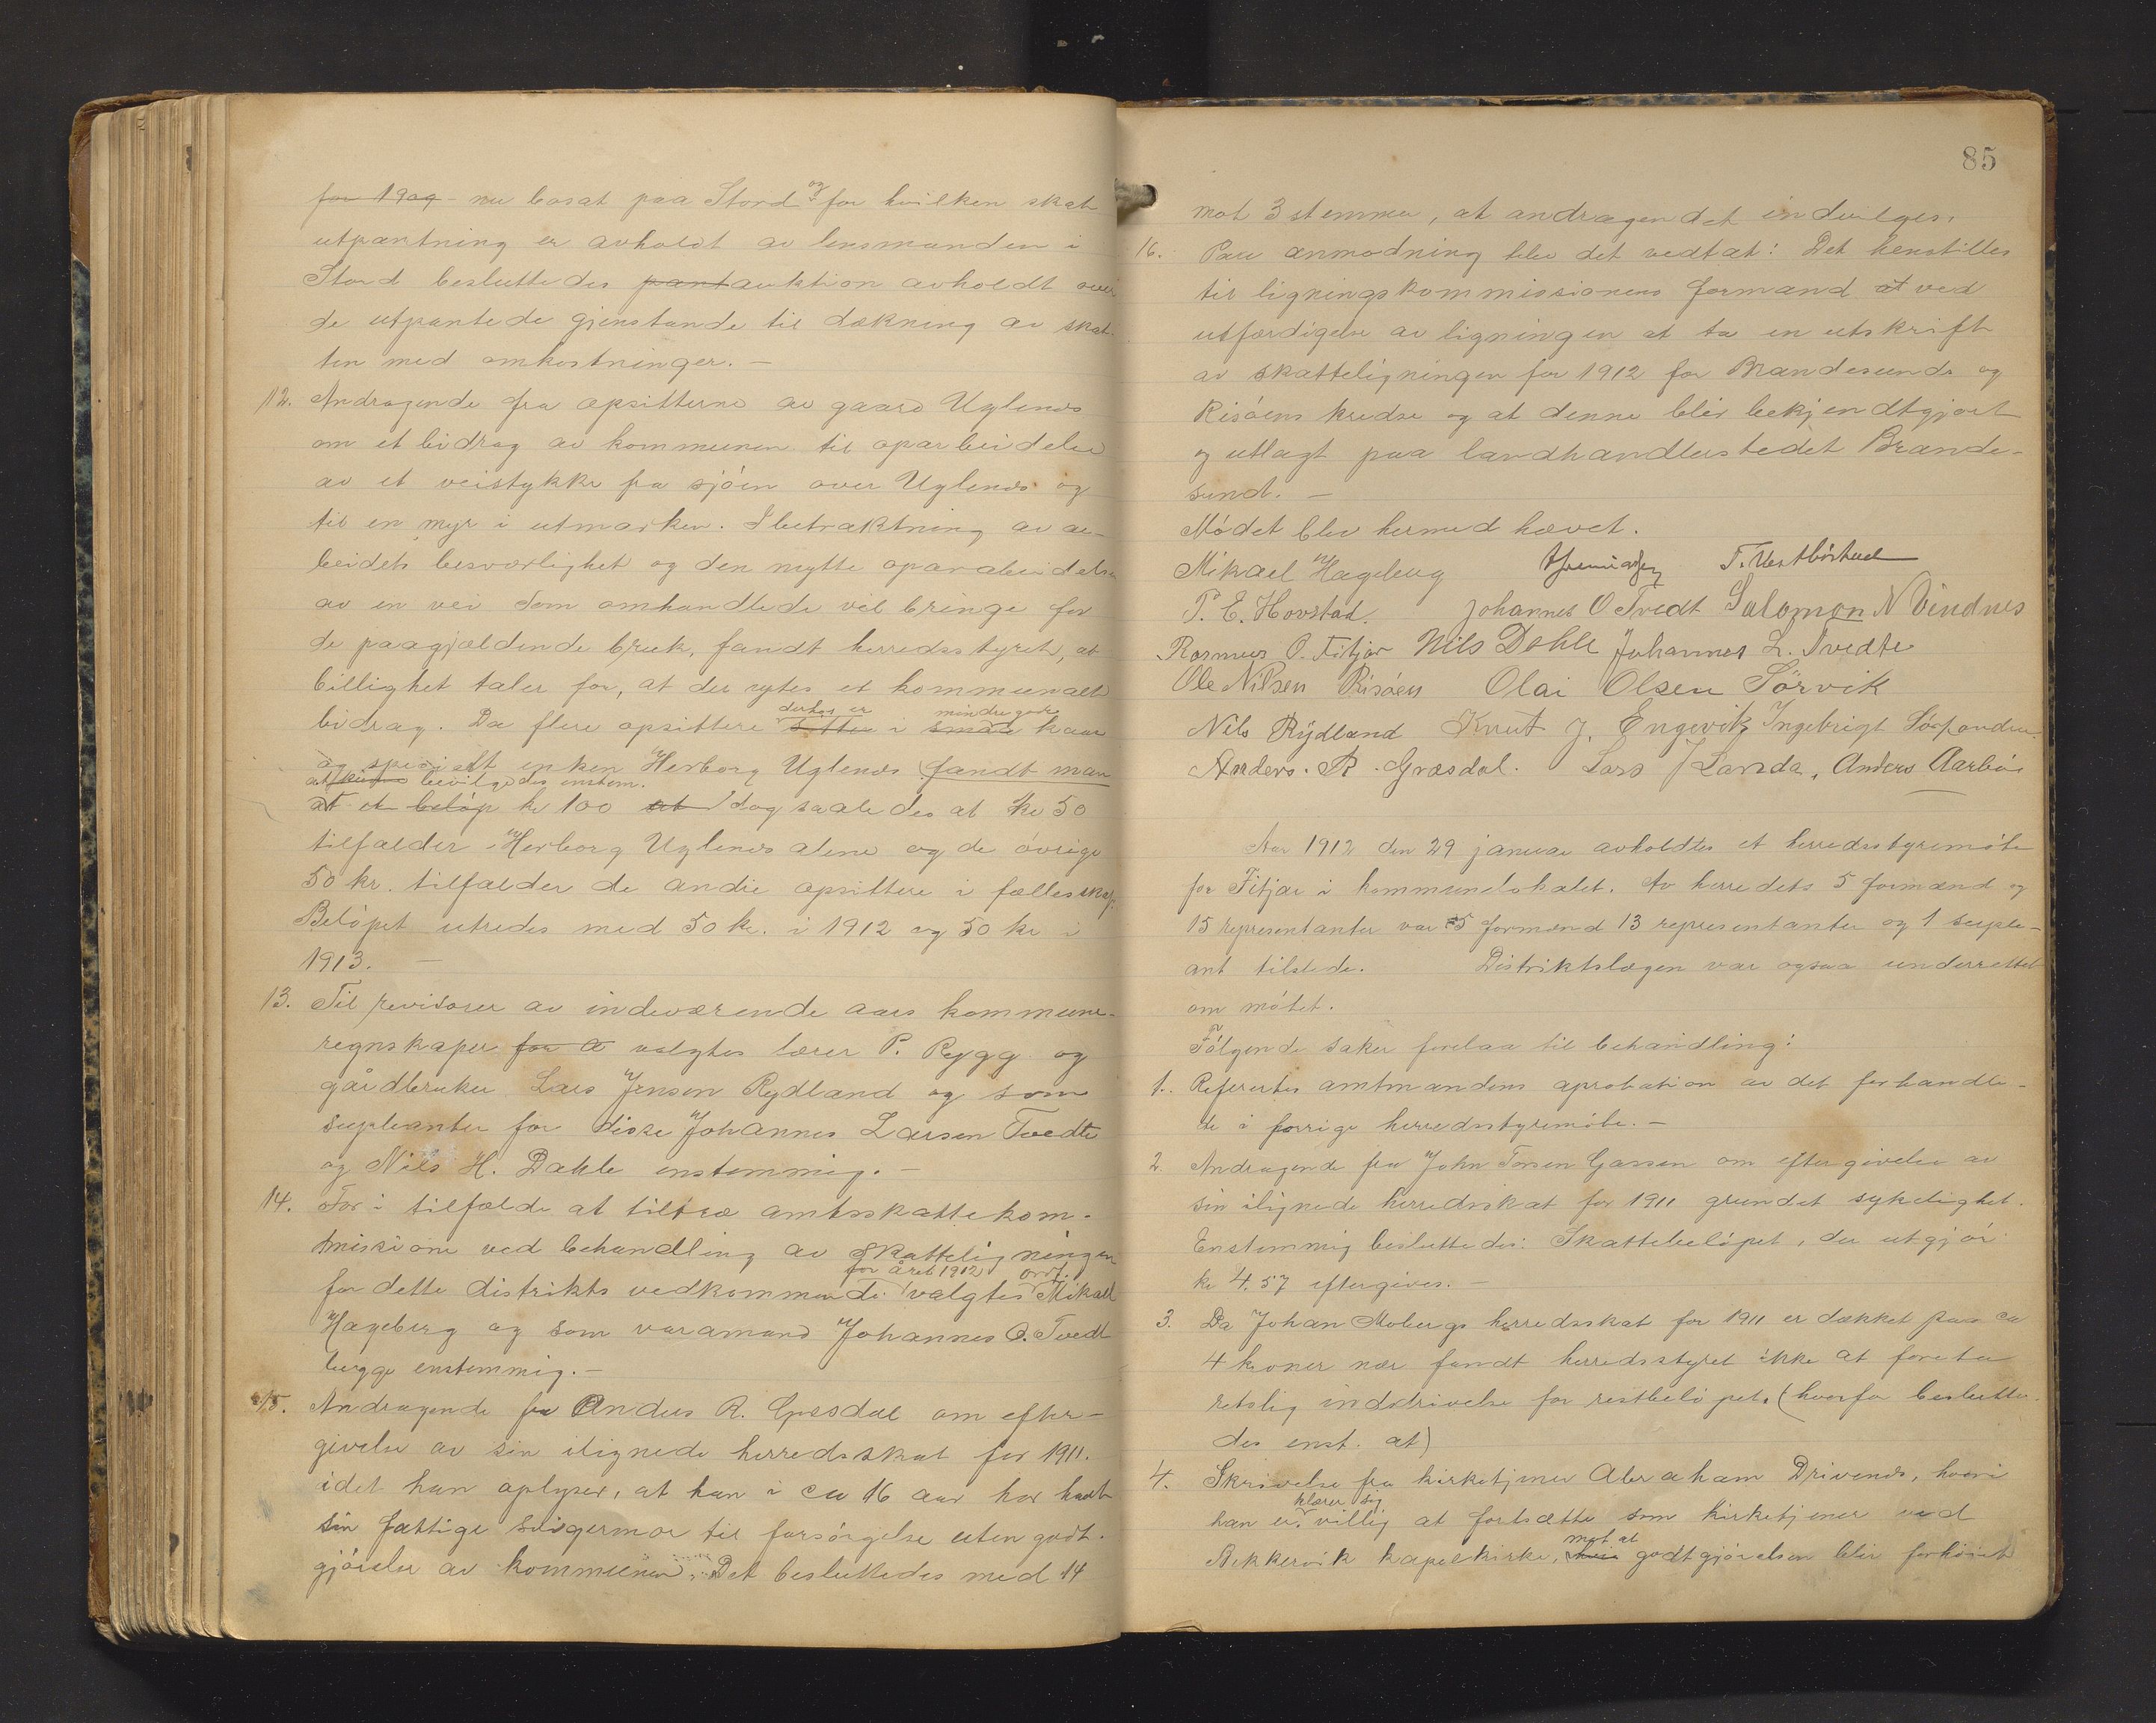 for 1909 - nu bosat paa Stord og for hvilken skat
utpantning er avholdt av lensmanden i
Stord besluttedes pantauktion avholdt over
de utpantede gjenstande til dækning av skat-
ten med omkostninger. -
12. Andragende fra opsitterne av gaard Uglenes
om et bidrag av kommunen til oparbeidelse
av et veistykke fra sjöen over Uglenes og
til en myr i utmarken. I betraktning av ar-
beidets besværlighet og den nytte oparbeidelsen
av en vei som omhandlede vil bringe for
de paagjældende bruk, fandt herredsstyret, at
billighet taler for, at der ytes et kommunalt
bidrag. Da flere opsittere sitter i smaa kaar
derhos er mindre gode
og specielt enken Herborg Uglenes fandt man
bevilgedes enstem.
at et belöp kr 100 dog saaledes at kr 50
tilfalder Herborg Uglenes alene og de övrige
50 kr. tilfalder de andre opsittere i fællesskap.
Belöpet utredes med 50 kr. i 1912 og 50 kr i
1913. -
13. Til revisorer av indeværende aars kommune-
regnskaper for a valgtes lærer P. Rygg og
gårdbruker Lars Jenson Rydland og som
supleanter for disse Johannes Larsen Tvedte
og Nils H. Dahle enstemmig. -
14. For i tilfælde at tiltræ amtsskattekom-
missionen ved behandling av skatteligningen
for året 1912 ordf.
for dette distrikts vedkommende valgtes Mikael
Hageberg og som varamand Johannes O. Tvedt
begge enstemmig. -
15. Andragende fra Anders R. Græsdal om efter-
givelse av sin ilignede herredsskat for 1911.
idet han oplyser, at han i ca 16 aar har havt
sin fattige svigermor til forsörgelse uten godt-
gjörelse av kommunen. Det besluttedes med 14
85
mot 3 stemmer, at andragendet indvilges.
16. Paa anmodning blev det vedtat: Det henstilles
til ligningskommissionens formand at ved
utfærdigelse av ligningen at ta en utskrift
av skatteligningen for 1912 for Brandesunds og
Risöens kredse og at denne blir bekjendtgjort
og utlagt paa landhandlerstedet Brande-
sund. -
Mödet blev hermed hævet.
Mikael Hageberg T. Vestbóstad
P. E. Hovstad. Johannes O Tvedt Salomon N Vindnes
Rasmus O. Fitjar Nils Dahle Johannes L. Tvedte
Ole Nilsen Risöen Olai Olsen Sörvik
Nils Rydland Knut J. Engevik Ingebrigt
Anders. R. Græsdal. Lars J Landa, Anders Aarbö
Aar 1912 den 29 januar avholdtes et herredsstyremöte
for Fitjar i kommunelokalet. Av herredets 5 formænd og
15 representanter var 5 formænd 13 representanter og 1 suple-
ant tilstede. Distriktslægen var ogsaa underrettet
om mötet.
Fölgende saker forelaa til behandling:
1. Refererte amtmandens aprobation av det forhandle-
te i forrige herredsstyremöte. -
2. Andragende fra John Torsen Gaasen om eftergivelse av
sin ilignede herredsskat for 1911 grundet sykelighet.
Enstemmig besluttedes: Skattebelöpet, der utgjör
kr 4.57 eftergives. -
3. Da Johan Mobergs herredsskat for 1911 er dækket paa ca
4 kroner nær fandt herredsstyret ikke at foreta
retslig inddrivelse for restbelöpet. (hvorfor beslutte-
des enst. at)
4. Skrivelse fra kirketjener Abraham Drivenes, hvori
klærer sig
han er villig at fortsætte som kirketjener ved
mot at
Rekkervik kapelkirke, hvis godtgjörelsen blir forhöiet